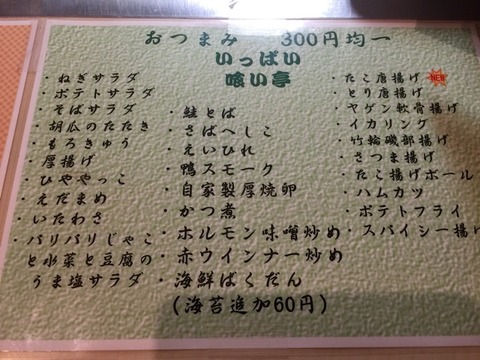 おつまみ 300円均一
いっぱい
喰い亭
・ねぎサラダ
・ポテトサラダ
・そばサラダ
・胡瓜のたたき
・もろきゅう
・厚揚げ
・ひややっこ
・えだまめ
・いたわさ
・パリパリじゃこ
と水菜と豆腐の
うま塩サラダ
・鮭とば
・さばへしこ
・えいひれ
・鴨スモーク
・自家製厚焼卵
・かつ煮
・ホルモン味噌炒め
・赤ウインナー炒め
・海鮮ばくだん
(海苔追加60円)
・たこ唐揚げ NEW
・とり唐揚げ
・ヤゲン軟骨揚げ
・イカリング
・竹輪磯部揚げ
・さつま揚げ
・たこ揚げボール
・ハムカツ
・ポテトフライ
・スパイシー揚げ